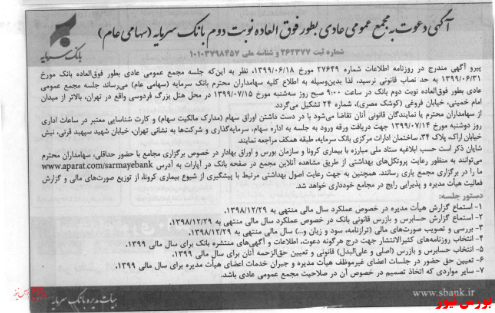 آگهی دعوت به مجمع عمومی عادی بطور فوق العاده نوبت دوم بانک سرمایه (سهامی عام)
شماره ثبت ۲۶۲۳۷۷ و شناسه ملی ۱۰۱۰۳۷۹۸۴۵۷
بانک سرمایه
پیرو آگهی مندرج در روزنامه اطلاعات شماره ۲۷۶۴۹ مورخ ۱۳۹۹/۰۶/۱۸، نظر به این‌که جلسه مجمع عمومی عادی بطور فوق‌العاده بانک مورخ
۱۳۹۹/۰۶/۳۱ به حد نصاب قانونی نرسید، لذا بدین‌وسیله به اطلاع کلیه سهامداران محترم بانک سرمایه (سهامی عام) می‌رساند جلسه مجمع عمومی
عادی بطور فوق‌العاده نوبت دوم بانک در ساعت ۹:۰۰ صبح روز سه‌شنبه مورخ ۱۳۹۹/۰۷/۱۵ در محل هتل بزرگ فردوسی واقع در تهران، بالاتر از میدان
امام خمینی، خیابان فروغی (کوشک مصری)، شماره ۲۴ تشکیل می‌گردد.
از سهامداران محترم یا نمایندگان قانونی آنان تقاضا می‌شود با در دست داشتن اوراق سهام (مدارک مالکیت سهام) و کارت شناسایی معتبر در ساعات اداری
روز دوشنبه مورخ ۱۳۹۹/۰۷/۱۴ جهت دریافت ورقه ورود به جلسه به اداره سهام، سرمایه‌گذاری و شرکت‌ها به نشانی تهران، خیابان شهید سپهبد قرنی، نبش
خیابان اراک، پلاک ۳۴، ساختمان ادارات مرکزی بانک سرمایه، طبقه همکف مراجعه نمایند.
شایان ذکر است حسب ابلاغیه ستاد ملی مبارزه با بیماری کرونا و سازمان بورس و اوراق بهادار در خصوص برگزاری مجامع با حضور حداقلی، سهامداران محترم
می‌توانند به منظور رعایت پروتکل‌های بهداشتی از طریق مشاهده آنلاین مجمع در صفحه بانک در آپارات به آدرس www.aparat.com/sarmayebank
ما را در برگزاری مجمع یاری رسانند. همچنین به جهت رعایت اصول بهداشتی مرتبط با پیشگیری از شیوع بیماری کرونا، از توزیع صورت‌های مالی و گزارش
فعالیت هیأت مدیره و پذیرایی رایج در مجامع خودداری خواهد شد.
دستور جلسه:
۱- استماع گزارش هیأت مدیره در خصوص عملکرد سال مالی منتهی به ۱۳۹۸/۱۲/۲۹.
۲- استماع گزارش حسابرس و بازرس قانونی بانک در خصوص عملکرد سال مالی منتهی به ۱۳۹۸/۱۲/۲۹.
۳- بررسی و تصویب صورت‌های مالی (ترازنامه، سود و زیان و...) سال مالی منتهی به ۱۳۹۸/۱۲/۲۹.
۴- انتخاب روزنامه‌های کثیرالانتشار جهت درج هرگونه دعوت، اطلاعات و آگهی‌های منتشره بانک برای سال مالی ۱۳۹۹.
۵- انتخاب حسابرس و بازرس (اصلی و علی‌البدل) قانونی و تعیین حق‌الزحمه آنان برای سال مالی ۱۳۹۹.
۶- تعیین حق حضور در جلسات اعضای غیرموظف هیأت مدیره و جبران خدمات اعضای هیأت مدیره برای سال مالی ۱۳۹۹.
۷- سایر مواردی که اتخاذ تصمیم در خصوص آن در صلاحیت مجمع عمومی عادی باشد.
هیأت مدیره بانک سرمایه
www.sbank.ir
بورس نیوز